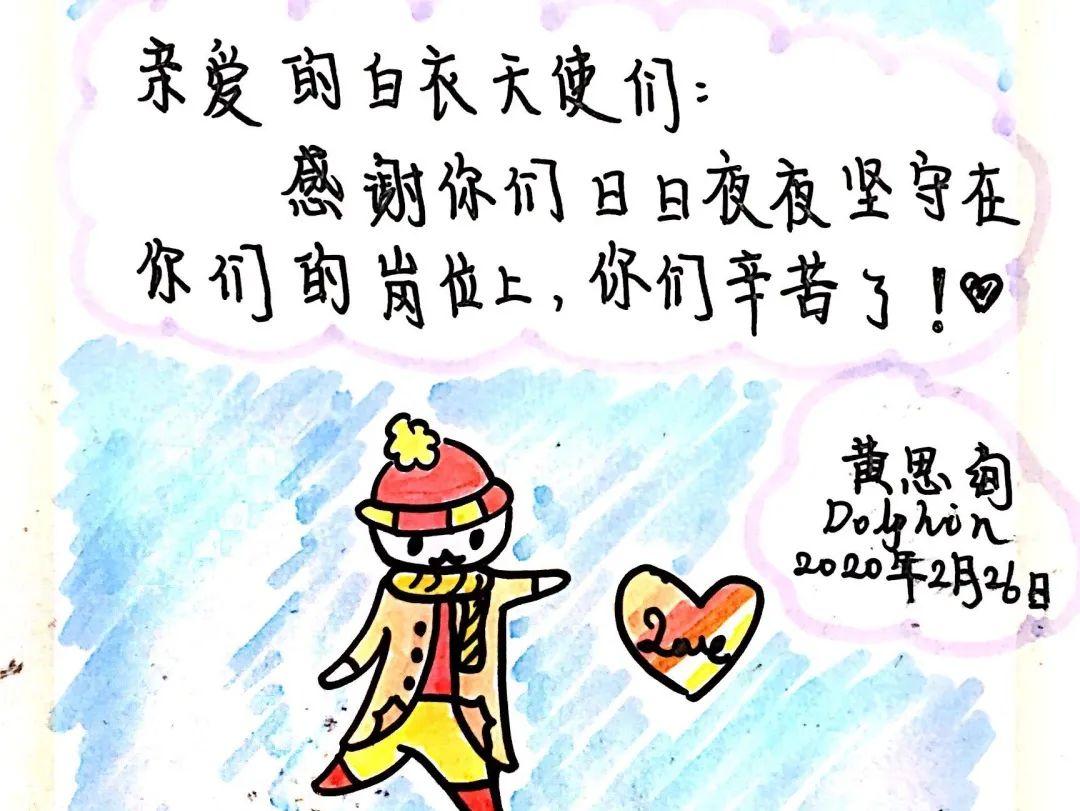 亲爱的白衣天使们：
感谢你们日日夜夜坚守在
你们的岗位上，你们辛苦了！
黄思洵
Dolphin
2020年2月26日
Love